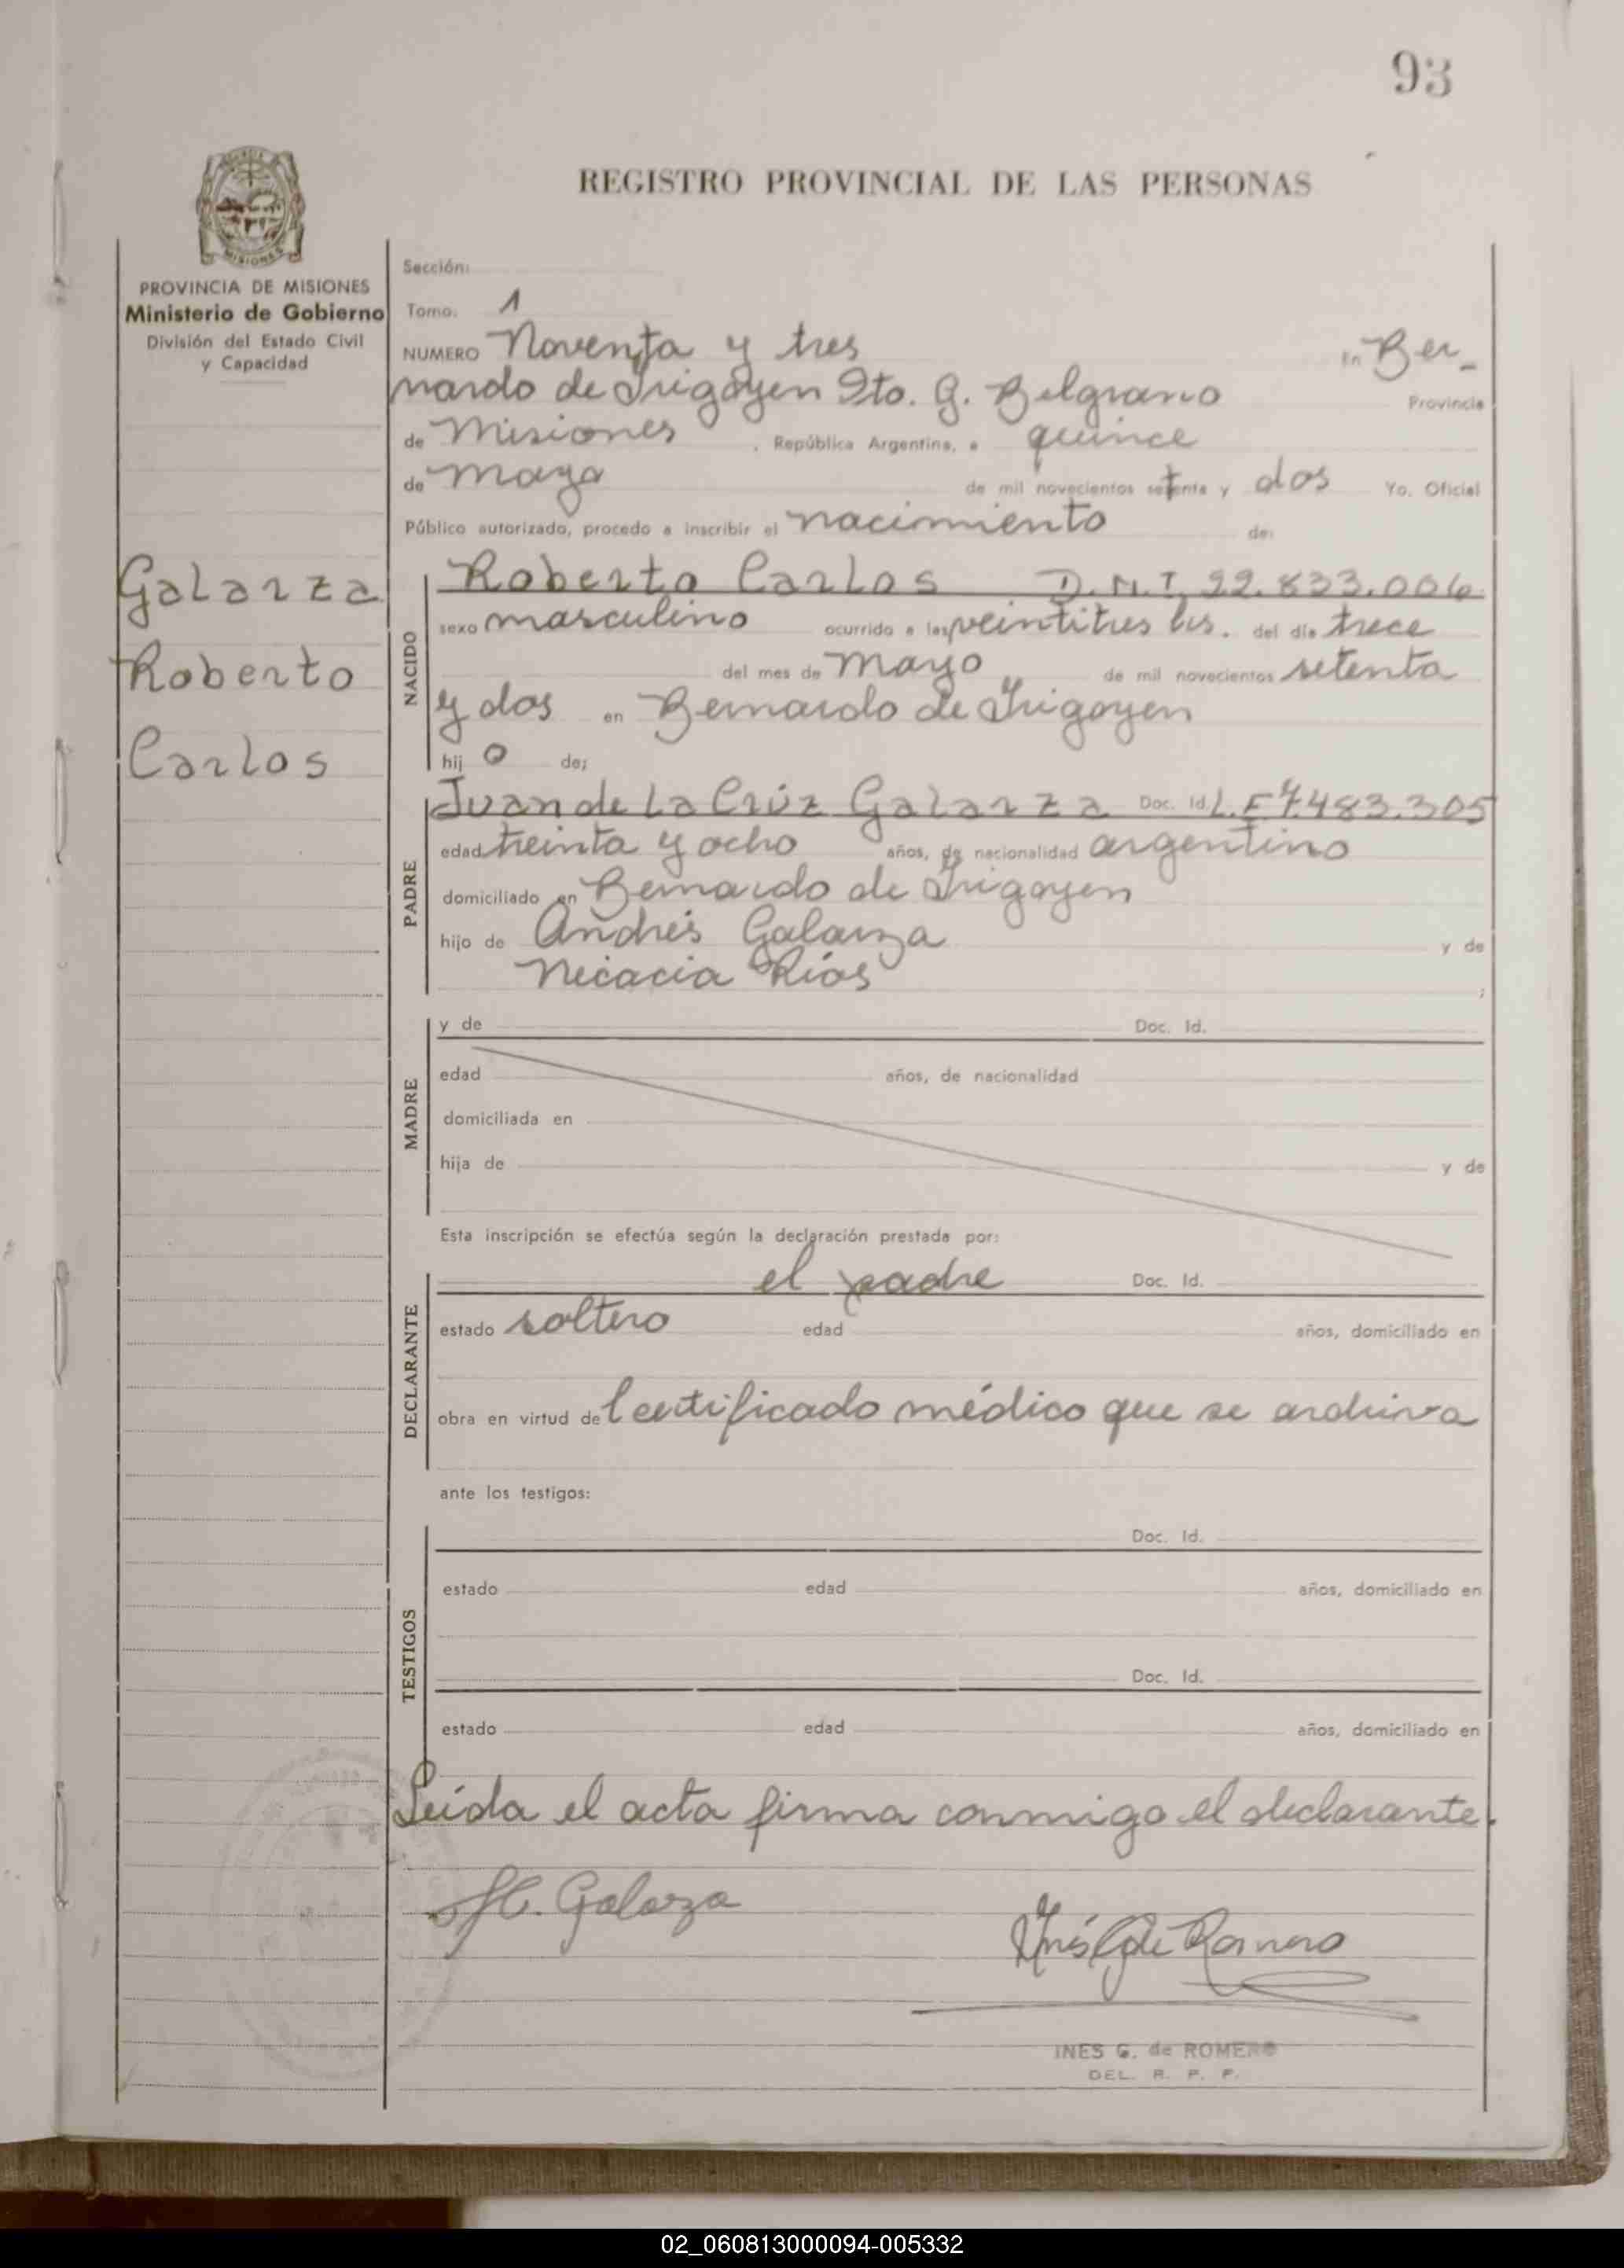 93
REGISTRO PROVINCIAL DE LAS PERSONAS
MISIONES
PROVINCIA DE MISIONES
Ministerio de Gobierno
División del Estado Civil
y Capacidad
Galarza
Roberto
Carlos
Sección:
Tomo. 1
NUMERO Noventa y tres En Ber-
nardo de Irigoyen Dto. G. Belgrano Provincia
de Misiones, República Argentina, a quince
de Mayo de mil novecientos setenta y dos Yo. Oficial
Público autorizado, procedo a inscribir el nacimiento de:
NACIDO
Roberto Carlos D.N.I. 22.833.006
sexo masculino ocurrido a las veintitres hs. del día trece
del mes de Mayo de mil novecientos setenta
y dos en Bernardo de Irigoyen
hij o de;
PADRE
Juan de La Crúz Galarza Doc. Id. L.E 7.483.305
edad treinta y ocho años, de nacionalidad argentino
domiciliado en Bernardo de Irigoyen
hijo de Andrés Galarza y de
Nicacia Ríos ;
MADRE
y de Doc. Id.
edad años, de nacionalidad
domiciliada en
hija de y de
Esta inscripción se efectúa según la declaración prestada por:
DECLARANTE
el padre Doc. Id.
estado soltero edad años, domiciliado en
obra en virtud de Certificado médico que se archiva
ante los testigos:
TESTIGOS
Doc. Id.
estado edad años, domiciliado en
Doc. Id.
estado edad años, domiciliado en
Leída el acta firma conmigo el declarante.
Galarza
Inés G de Romero
INES G. de ROMERO
DEL. R. P. P.
02_060813000094-005332